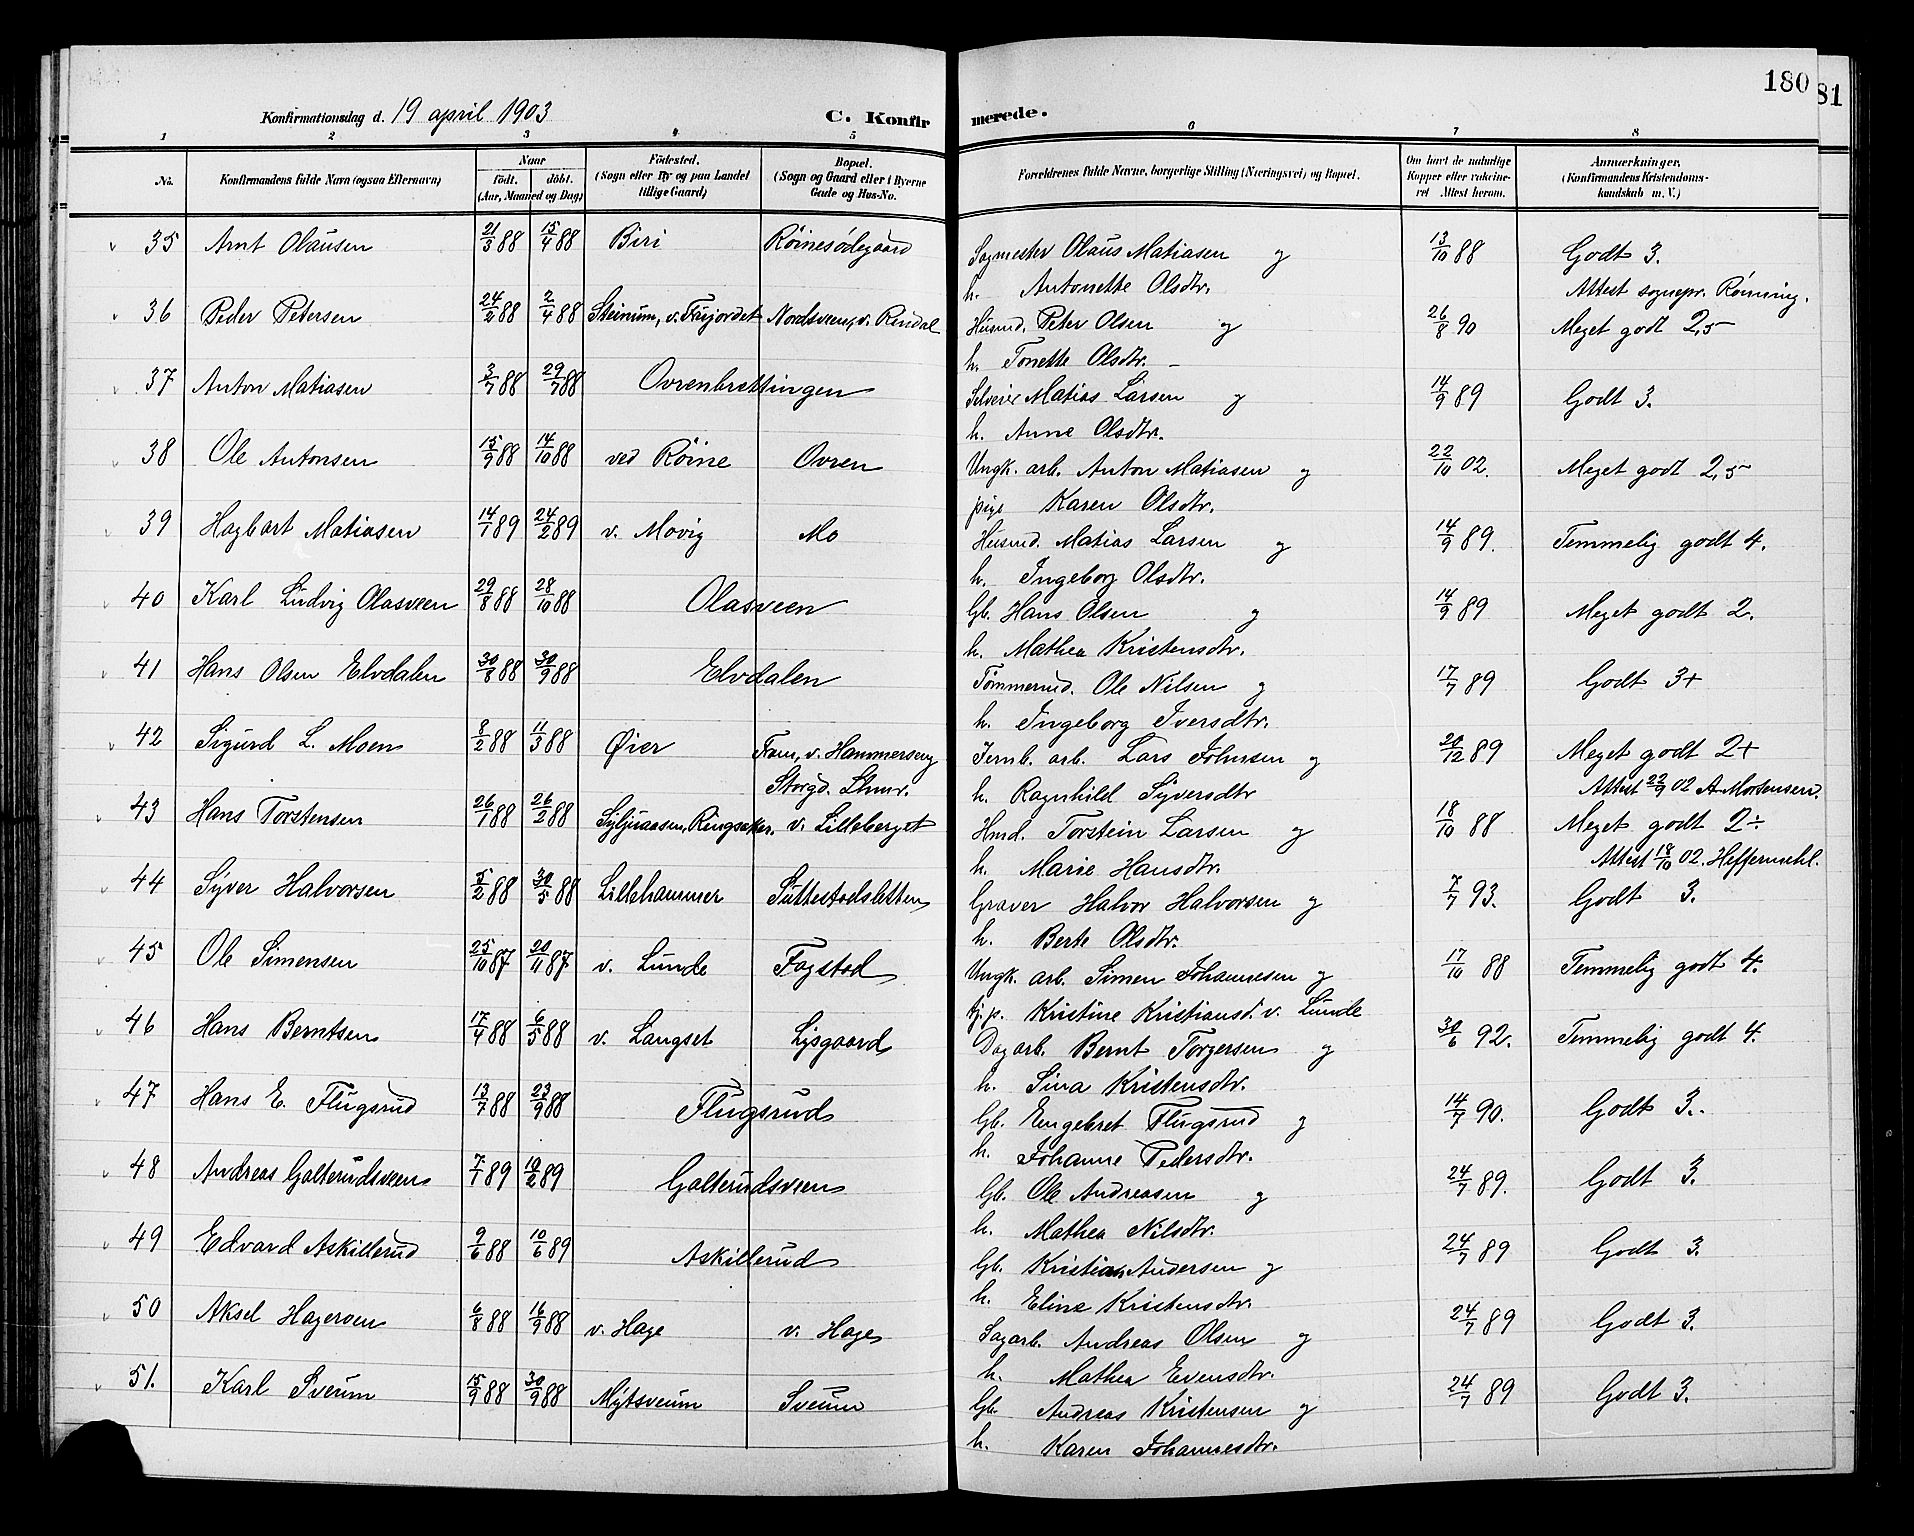 180
81
Konfirmationsdag d. 19 april 1903
C. Konfirmerede.
1 2 3 4 5 6 7 8
No. Konfirmandens fulde Navn (ogsaa Efternavn) Naar født. døbt. (Aar, Maaned og Dag) Födested. (Sogn eller By og paa Landet tillige Gaard) Bopæl. (Sogn og Gaard eller i Byerne Gade og Hus-No. Forældrenes fulde Navne, borgerlige Stilling (Næringsvei) og Bopæl. Om havt de naturlige Kopper eller vaccineret Attest herom. Anmærkninger. (Konfirmandens Kristendomskundskab m. V.)
35 Arnt Olausen 21/3 88 15/4 88 Biri Røinesødegaard Sagmester Olaus Matiasen og 13/10 88 Godt 3.
h. Antonette Olsdtr. Attest sognepr. Rønning.
36 Peder Petersen 24/2 88 2/4 88 Steinum, v. Furjordet Nordsveen, v. Rindal Husmd. Peter Olsen og 26/8 90 Meget godt 2,5
h. Tonette Olsdtr. –
37 Anton Matiasen 3/7 88 29/7 88 Ovrenbrettingen Selveier Matias Larsen og 14/9 89 Godt 3.
h. Anne Olsdtr.
38 Ole Antonsen 15/9 88 14/10 88 ved Røine Ovren Ungk. arb. Anton Matiasen og 22/10 02. Meget godt 2,5
pige Karen Olsdtr.
39 Hagbart Matiasen 14/1 89 24/2 89 v. Movig Mo Husmd. Matias Larsen og 14/9 89. Temmelig godt 4.
h. Ingeborg Olsdtr.
40 Karl Ludvig Olasveen 29/8 88 28/10 88 Olasveen Gb. Hans Olsen og 14/9 89 Meget godt 2.
h. Mathea Kristensdtr.
41 Hans Olsen Elvdalen 30/8 88 30/9 88 Elvdalen Tømmermd. Ole Nilsen og 17/7 89 Godt 3+
h. Ingeborg Iversdtr.
42 Sigurd L. Moen 8/2 88 11/3 88 Øier Fram, v. Hammerseng Jernb. arb. Lars Johnsen og 20/12 89 Meget godt 2+
Storgd. Lhmr. h. Ragnhild Syversdtr Attest 22/9 02 A. Mortensen.
43 Hans Torstensen 26/1 88 26/2 88 Syljuaasen, Ringsaker. v. Lilleberget Hmd. Torstein Larsen og 18/10 88 Meget godt 2÷
h. Marie Hansdtr. Attest 18/10 02. Heffermehl.
44 Syver Halvorsen 5/2 88 30/5 88 Lillehammer Suttestadsletten Graver Halvor Halvorsen og 7/7 93. Godt 3.
h. Berte Olsdtr.
45 Ole Simensen 25/10 87 20/11 87 v. Lunde Fagstad Ungk. arb. Simen Johannesen og 17/10 88 Temmelig godt 4.
tj.p. Kristine Kristiansd. v. Lunde
46 Hans Berntsen 17/4 88 6/5 88 v. Langset Lysgaard Dagarb. Bernt Torgersen og 30/6 92. Temmelig godt 4.
h. Sina Kristensdtr.
47 Hans E. Flugsrud 13/7 88 23/9 88 Flugsrud Gb. Engebret Flugsrud og 14/7 90. Godt 3.
h. Johanne Pedersdtr.
48 Andreas Galterudsveen 7/1 89 10/2 89 Galterudsveen Gb. Ole Andreasen og 24/7 89. Godt 3.
h. Mathea Nilsdtr.
49 Edvard Askillerud 9/6 88 10/6 89 Askillerud Gb. Kristian Andersen og 24/7 89 Godt 3.
h. Eline Kristensdtr.
50 Aksel Hageroen 6/8 88 16/9 88 v. Hage v. Hage Sagarb. Andreas Olsen og 24/7 89 Godt 3.
h. Mathea Evensdtr.
51. Karl Sveum 15/9 88 30/9 88 Mytsveum Sveum Gb. Andreas Kristensen og 24/7 89 Godt 3.
h. Karen Johannesdtr.